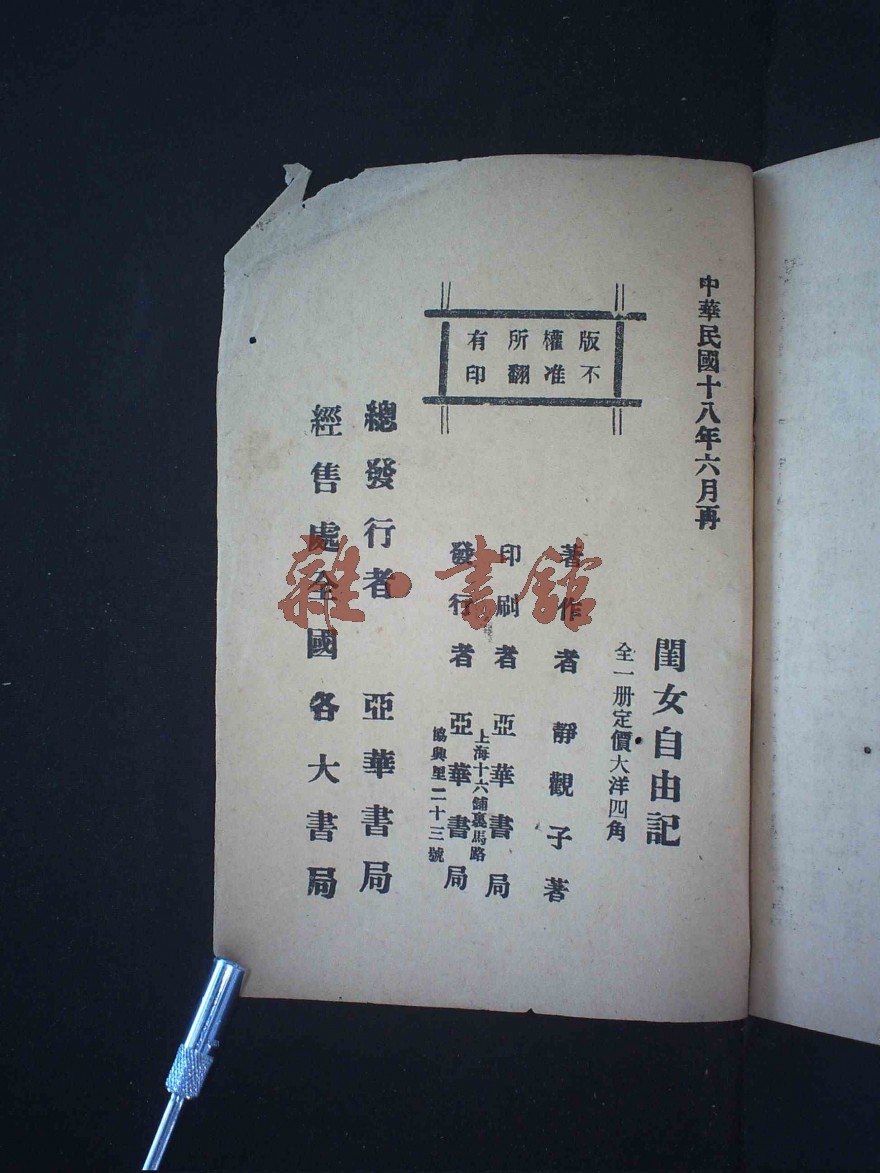 中華民國十八年六月再
閨女自由記
全一册定價大洋四角
版權所有
不准翻印
著作者 靜觀子著
印刷者 亞華書局
上海十六鋪裏馬路
發行者 亞華書局
協興里二十三號
總發行者 亞華書局
經售處全國各大書局
雜·書館